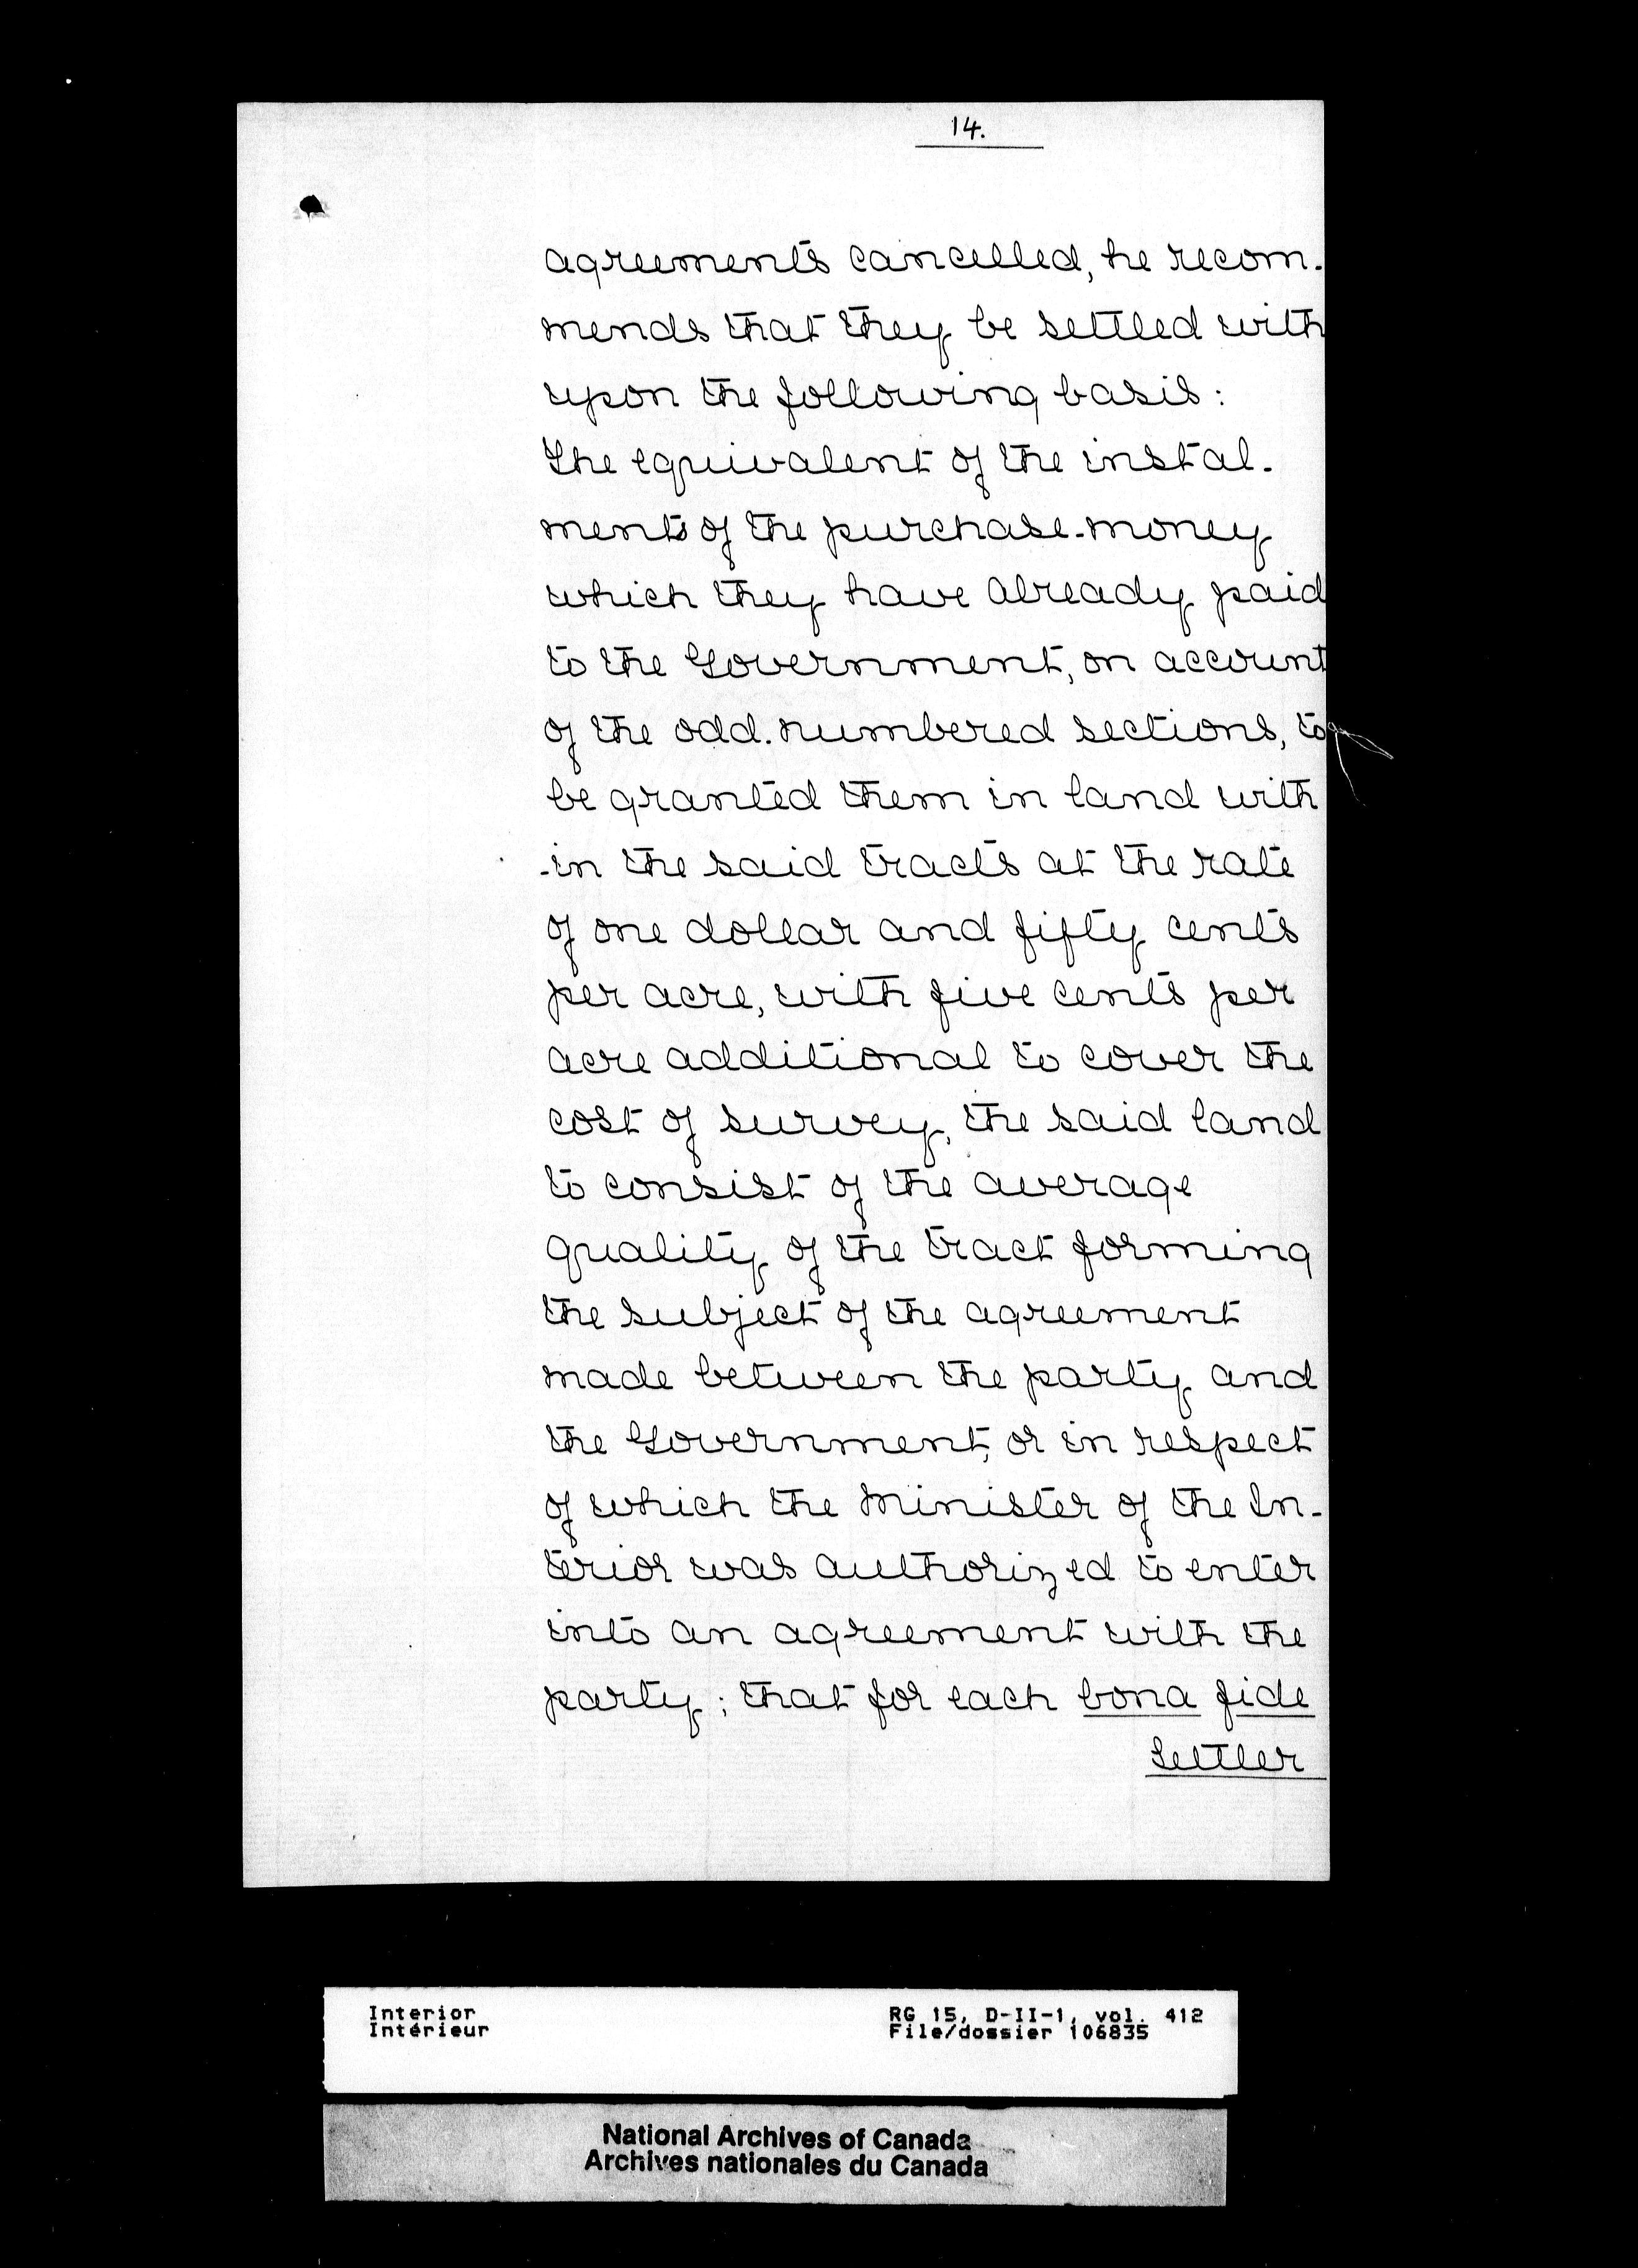 14.
agreements cancelled, he recom-
mends that they be settled with
upon the following basis:
The equivalent of the instal-
ments of the purchase-money
which they have already paid
to the Government, on account
of the odd-numbered sections, to
be granted them in land with
-in the said tracts at the rate
of one dollar and fifty cents
per acre, with five cents per
acre additional to cover the
cost of survey, the said land
to consist of the average
quality of the tract forming
the subject of the agreement
made between the party and
the Government, or in respect
of which the Minister of the In-
terior was authorized to enter
into an agreement with the
party; that for each bona fide
Settler
Interior
Intérieur
RG 15, D-II-1, vol. 412
File/dossier 106835
National Archives of Canada
Archives nationales du Canada